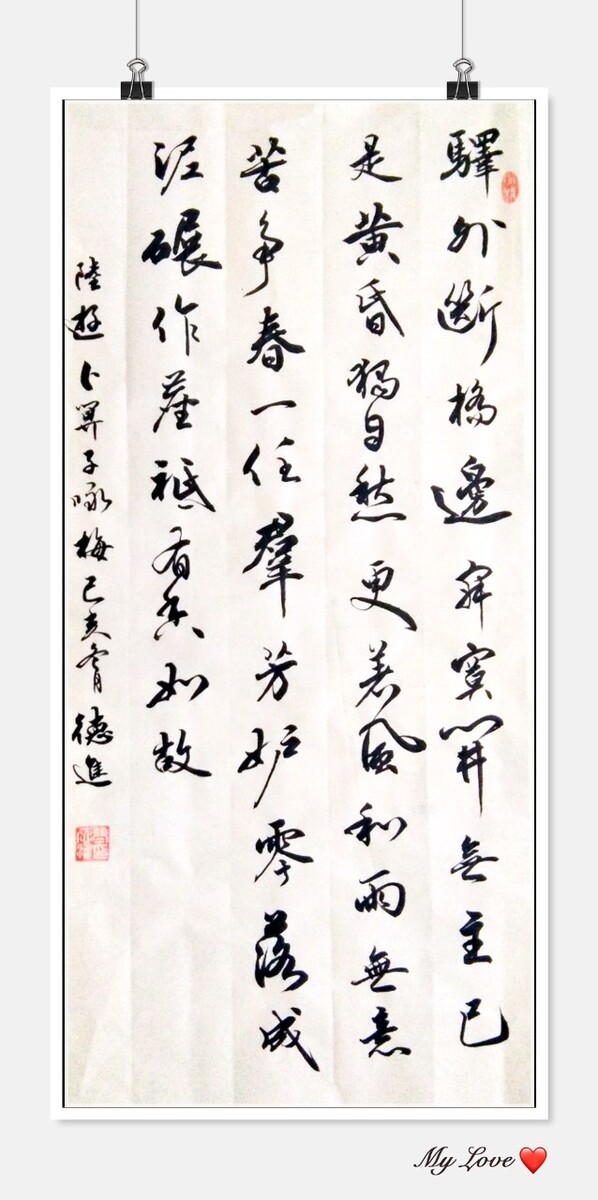 驛外斷橋邊寂寞開無主已
是黄昏獨自愁更着風和雨無意
苦争春一任羣芳妒零落成
泥碾作塵祗有香如故
陸游卜算子咏梅己亥德進
My Love ❤️